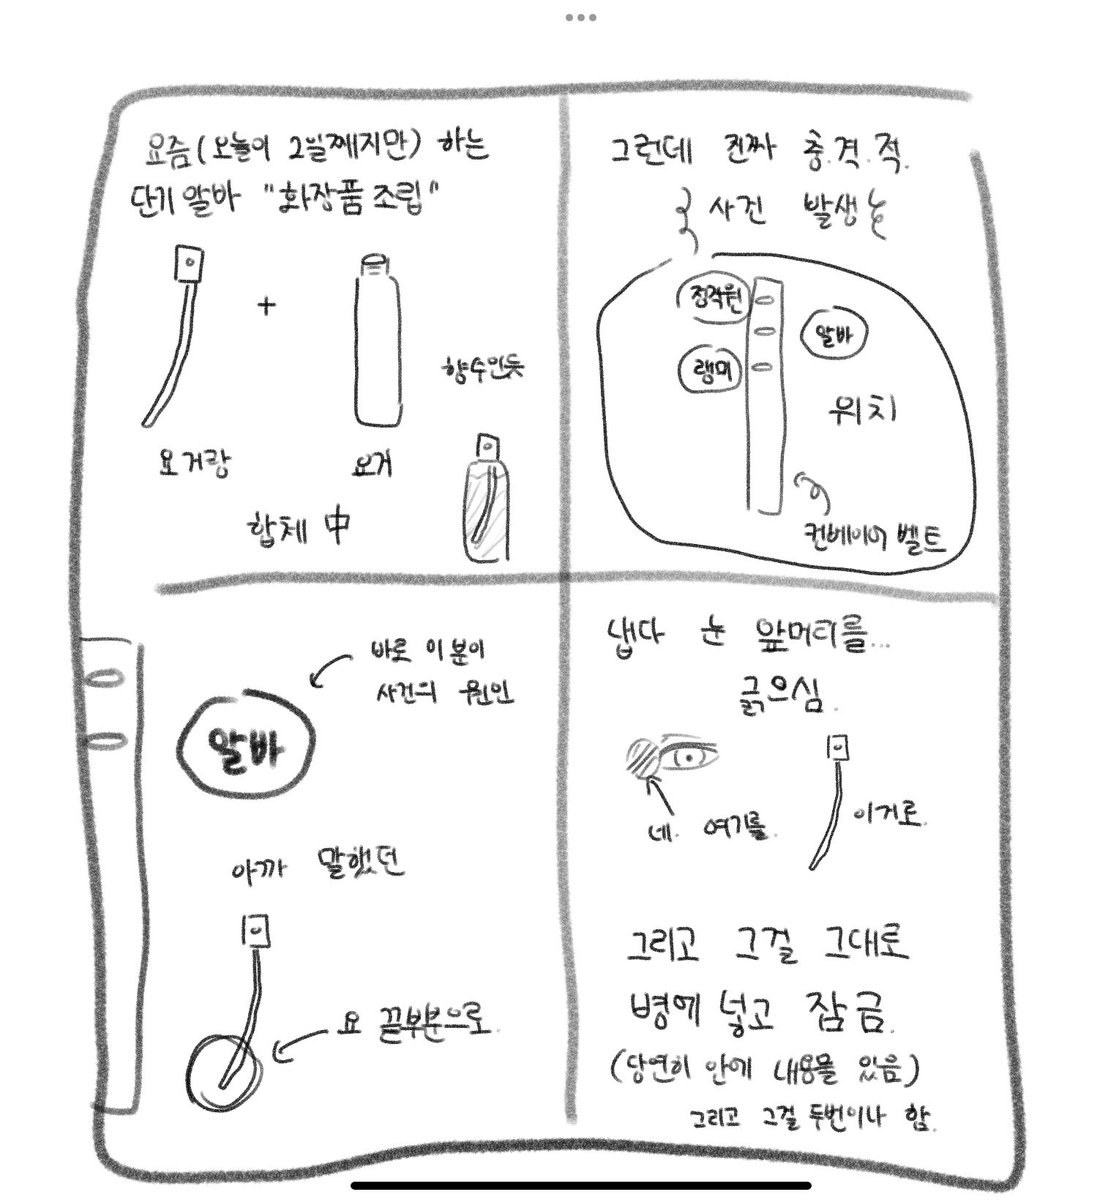 요즘(오늘이 2일째지만) 하는
단기알바 "화장품 조립"
+
향수인듯
요거랑
요거
합체 中
그런데 진짜 충.격.적.
사건 발생
정직원
알바
랭미
위치
컨베이어 벨트
바로 이분이
사건의 원인
알바
아까 말했던
요 끝부분으로.
냅다 눈 앞머리를...
긁으심.
네. 여기를.
이거로.
그리고 그걸 그대로
병에 넣고 잠금.
(당연히 안에 내용물 있음)
그리고 그걸 두번이나 함.